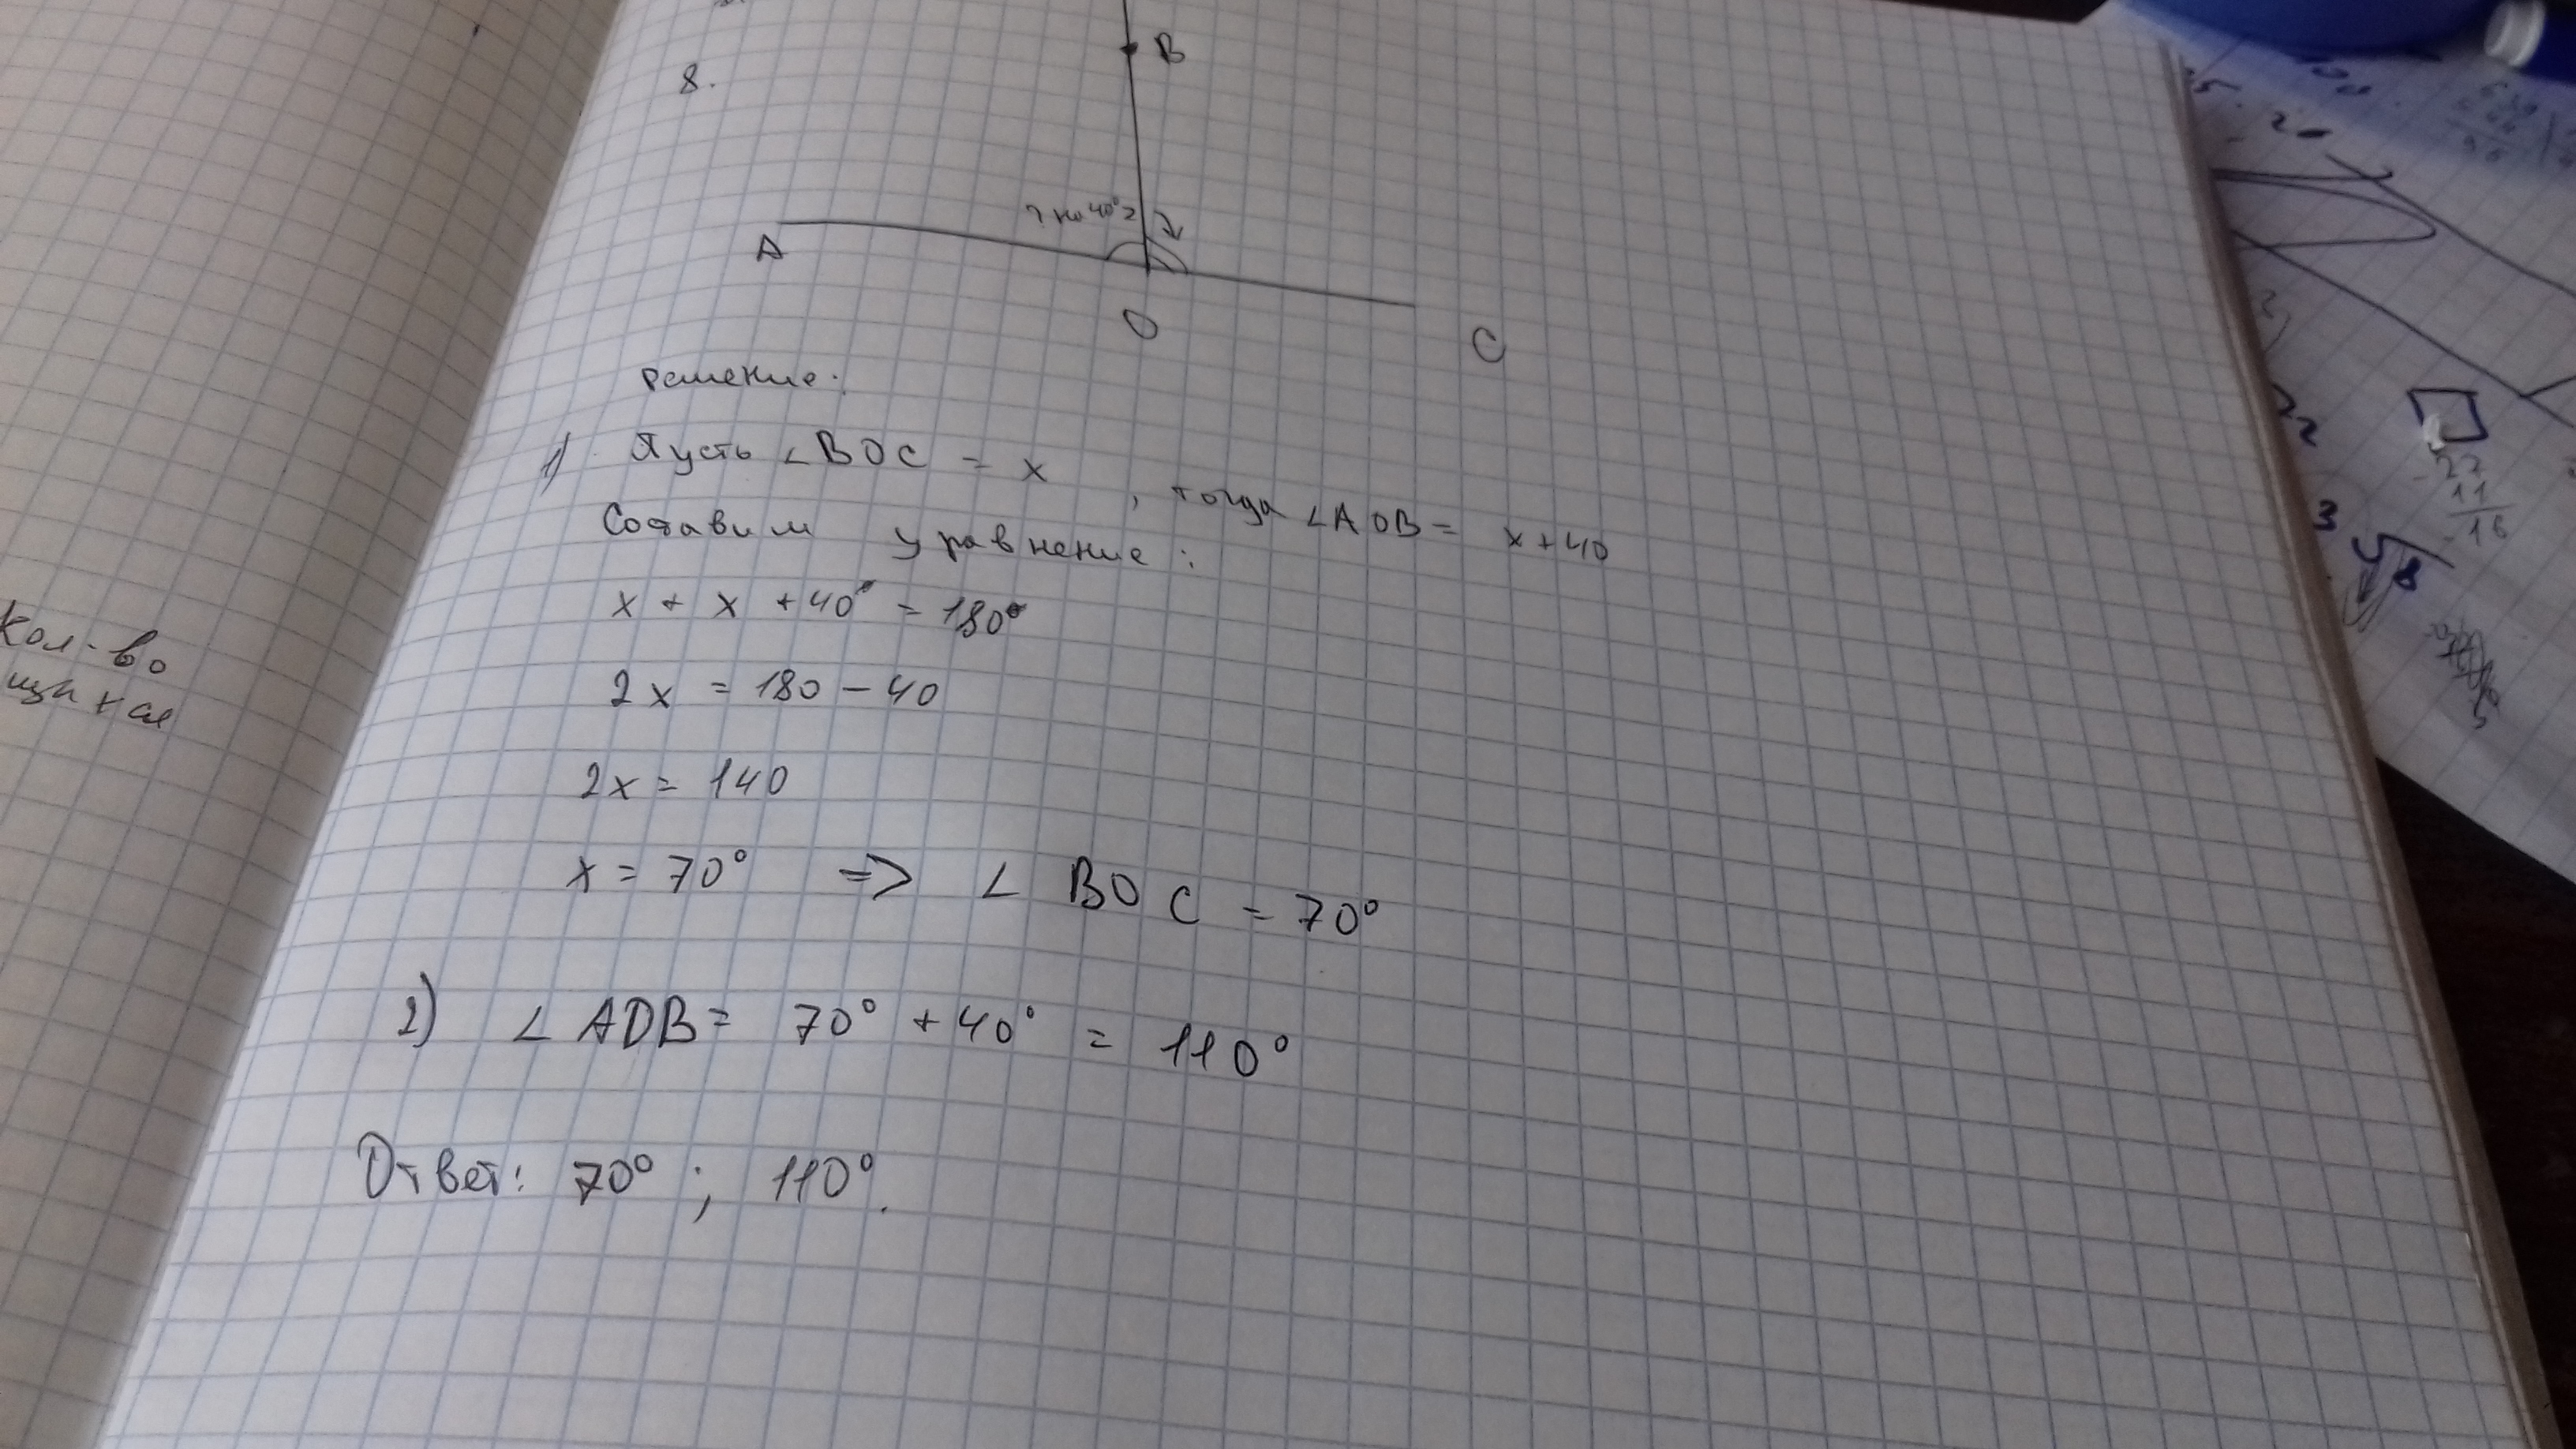 8.
B
? на 40° >
A
O
C
Решение:
1) Пусть ∠BOC = x, тогда ∠AOB = x+40
Составим уравнение:
x + x + 40° = 180°
2x = 180 - 40
2x = 140
x = 70° => ∠ BOC = 70°
2) ∠AOB = 70° + 40° = 110°
Ответ: 70° ; 110°.
Кол-во
27
11
16
3
√8